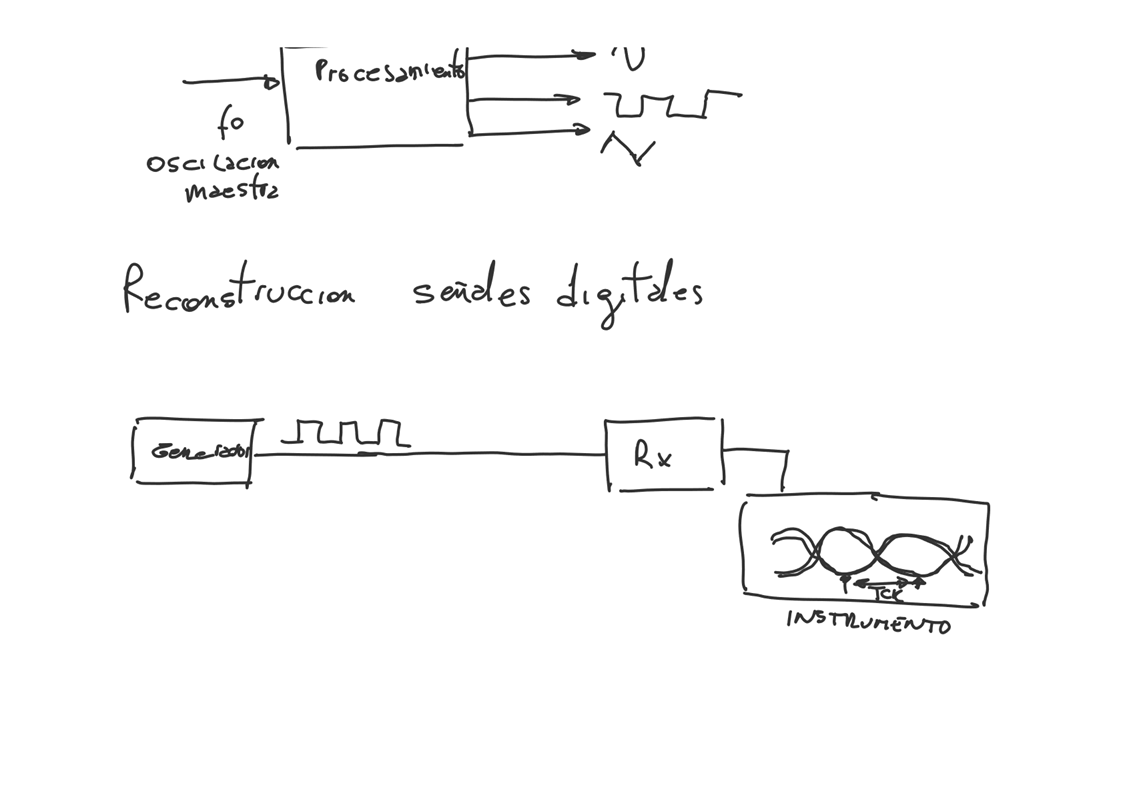 Procesamiento
fo
oscilacion
maestra
Reconstruccion señales digitales
Generador
Rx
TCK
INSTRUMENTO